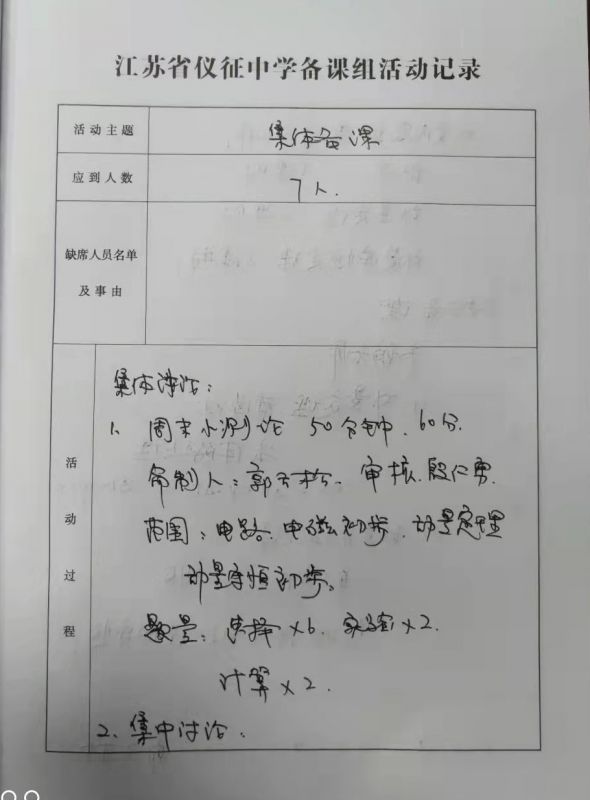 江苏省仪征中学备课组活动记录
活动主题
集体备课
应到人数
7人.
缺席人员名单
及事由
活动过程
集体讨论:
1、周末小测 50分钟、60分.
命制人: 审核、殷仁勇
范围:电路、电磁初步、动量定理
动量守恒初步。
题量:选择×6、实验×2.
计算×2.
2、集中讨论: